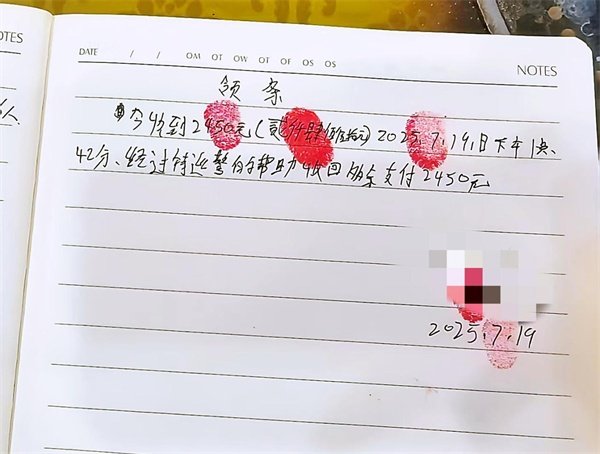 TES
DATE / / OM OT OW OT OF OS OS
NOTES
领条
人.
今收到2450元(贰仟肆佰伍拾元)2025.7.19,日下午1点
42分、经过特巡警的帮助收回多余支付2450元
2025.7.19